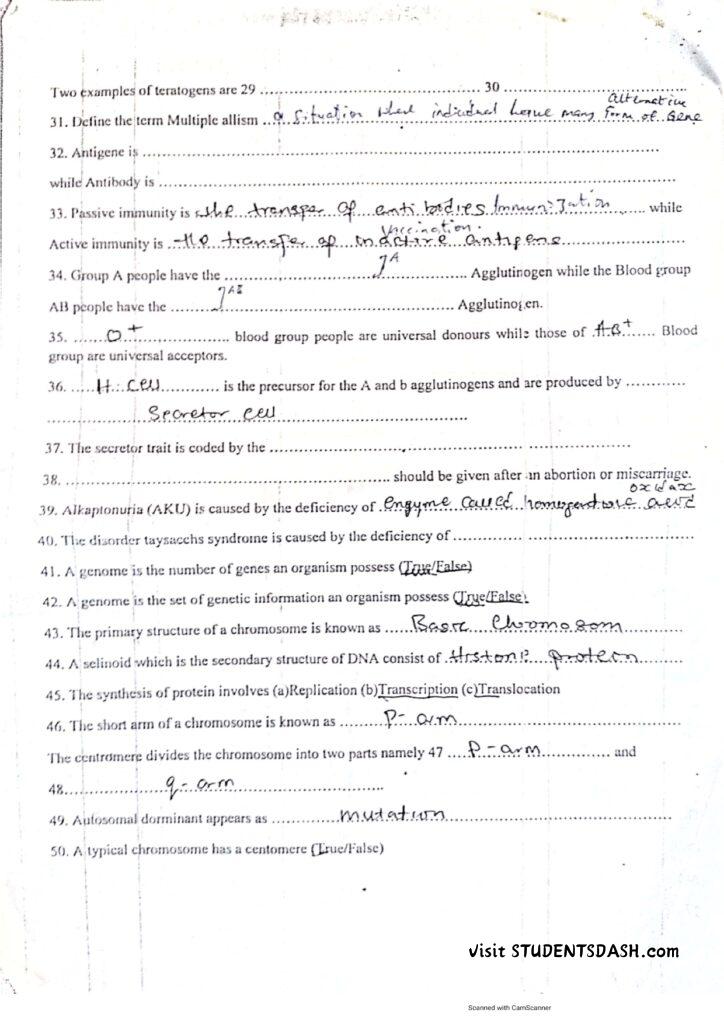 Two examples of teratogens are 29 .................................................. 30 ..........................................
alternative
31. Define the term Multiple allism ..a situation where individual have many form of Gene
32. Antigene is ..........................................................................................................
while Antibody is ..........................................................................................................
33. Passive immunity is the transfer of antibodies Immunization ...... while
Vaccination.
Active immunity is the transfer of inactive antigene..............................
34. Group A people have the ..............IA.................. Agglutinogen while the Blood group
AB people have the .........IAB................................................... Agglutinogen.
35. ......O+..................... blood group people are universal donours while those of AB+...... Blood
group are universal acceptors.
36. ....H. Cell............ is the precursor for the A and b agglutinogens and are produced by ............
...................Secretor cell........................................
37. The secretor trait is coded by the ..............................................................................
38. .................................................................. should be given after an abortion or miscarriage.
39. Alkaptonuria (AKU) is caused by the deficiency of enzyme called
40. The disorder taysacchs syndrome is caused by the deficiency of..................................................
41. A genome is the number of genes an organism possess (True/False)
42. A genome is the set of genetic information an organism possess (True/False)
43. The primary structure of a chromosome is known as ......Basic Chromosom............
44. A selinoid which is the secondary structure of DNA consist of Histone protein........
45. The synthesis of protein involves (a)Replication (b)Transcription (c)Translocation
46. The short arm of a chromosome is known as .........P- arm..................................................
The centromere divides the chromosome into two parts namely 47 ....P-arm................ and
48....................q- arm..............................
49. Autosomal dorminant appears as ..............mutation..................................................
50. A typical chromosome has a centomere (True/False)
visit STUDENTSDASH.com
Scanned with CamScanner